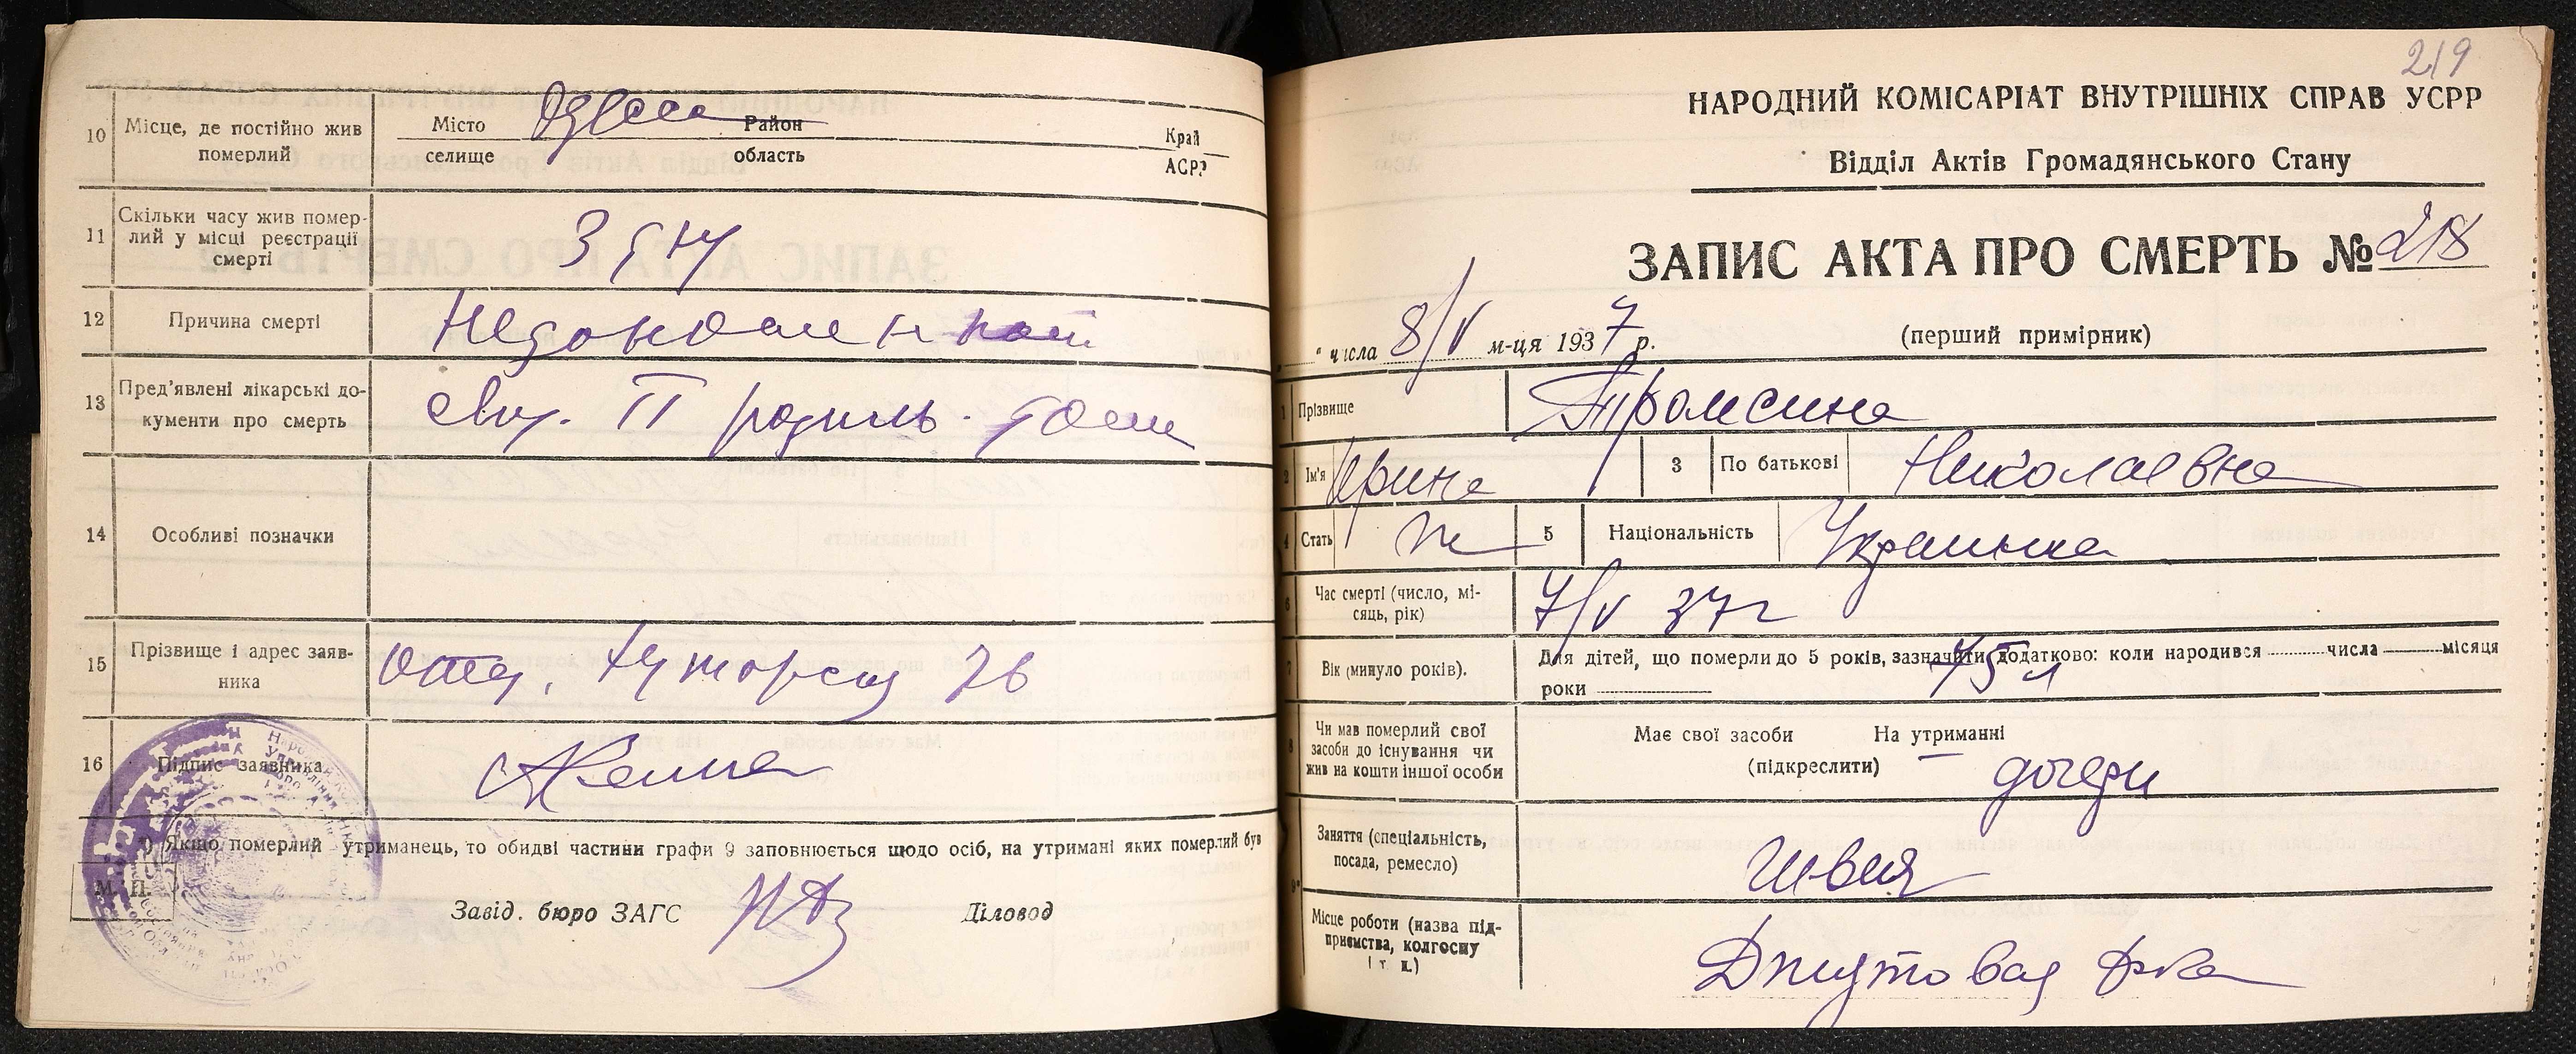 10
Місце, де постійно жив
померлий
Місто Одесса Район Край
селище область АСРР
11
Скільки часу жив помер-
лий у місці реєстрації
смерті
3 дня
12
Причина смерті
Недоношенность
13
Пред'явлені лікарські до-
кументи про смерть
свид. II родиль. дома
14
Особливі позначки
15
Прізвище і адрес заяв-
ника
Хуторская 76
16
Підпис заявника
М. П.
¹) Якщо померлий утриманець, то обидві частини графи 9 заповнюється щодо осіб, на утримані яких померлий був
Завід. бюро ЗАГС Діловод
219
НАРОДНИЙ КОМІСАРІАТ ВНУТРІШНІХ СПРАВ УСРР
Відділ Актів Громадянського Стану
ЗАПИС АКТА ПРО СМЕРТЬ № 218
„ “ числа 8/V м-ця 1937 р. (перший примірник)
1 Прізвище
2 Ім'я Ирина 3 По батькові Николаевна
4 Стать ж 5 Національність Украинка
6 Час смерті (число, мі-
сяць, рік)
7/V 37 г
7 Вік (минуло років).
Для дітей, що померли до 5 років, зазначити додатково: коли народився числа місяця
роки
75 л
8 Чи мав померлий свої
засоби до існування чи
жив на кошти іншої особи
Має свої засоби На утриманні
(підкреслити) дочери
9
Заняття (спеціальність,
посада, ремесло)
Швея
Місце роботи (назва під-
приємства, колгоспу
і т. п.)
Джутовая ф-ка